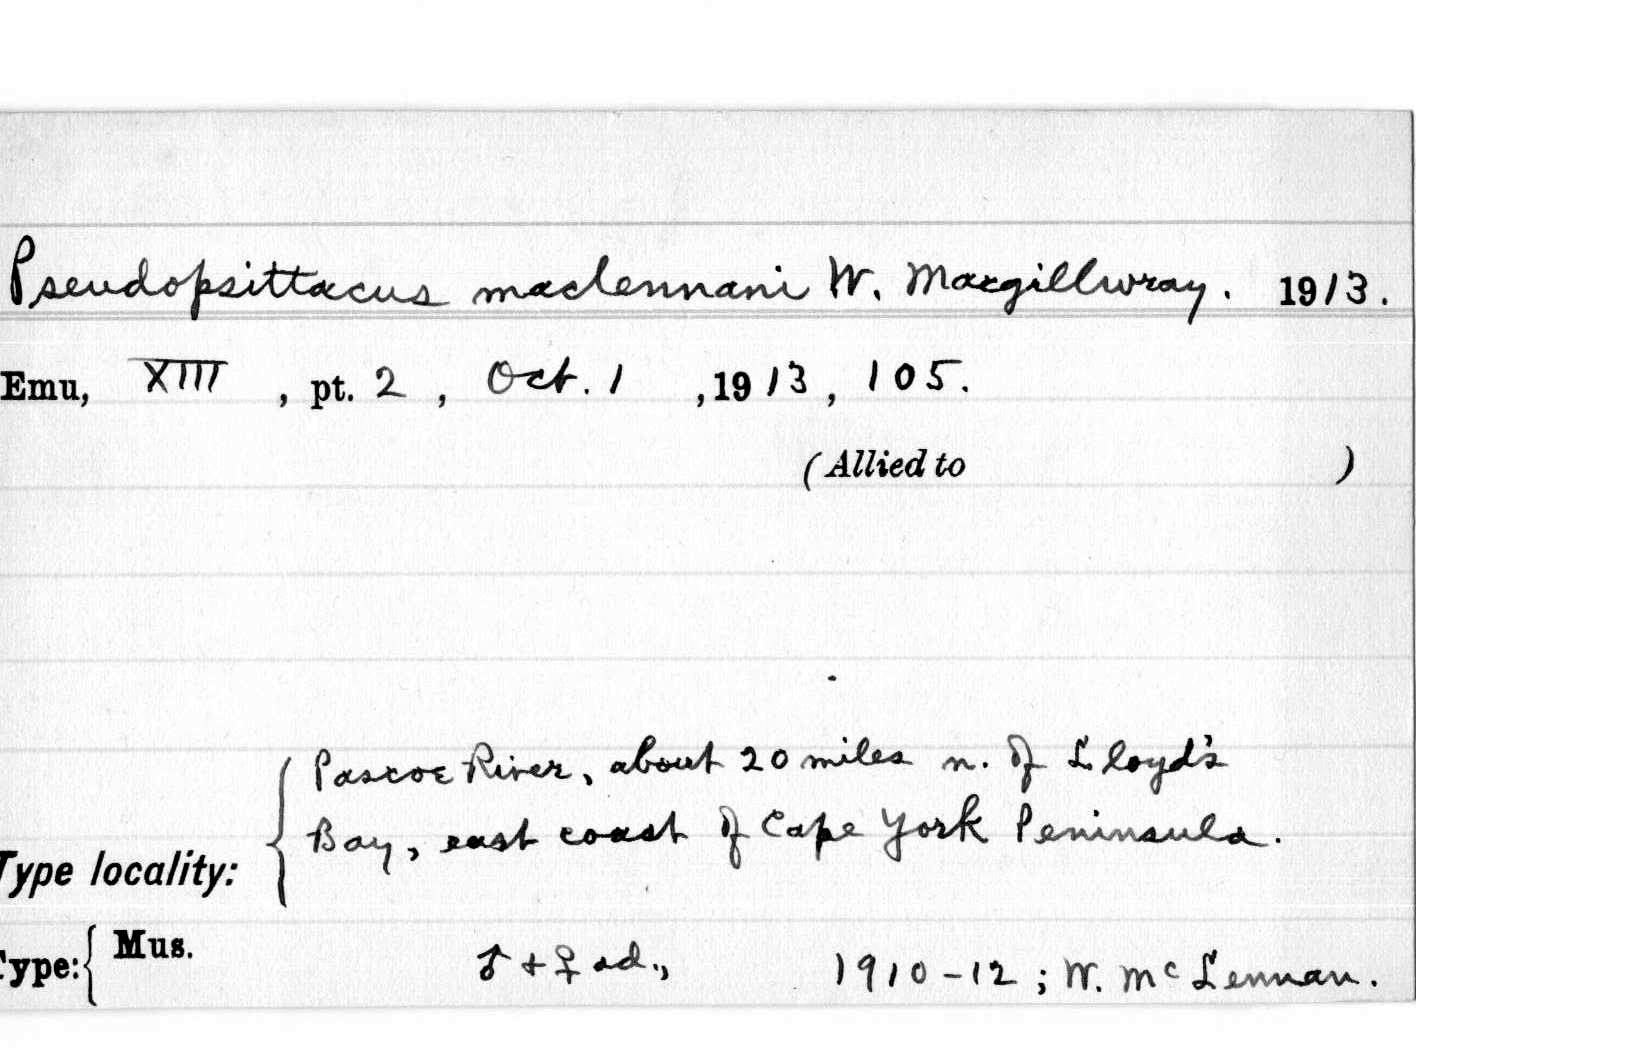 Pseudopsittacus maclennani W. Macgillivray. 1913.
Emu, XIII, pt. 2, Oct. 1, 1913, 105.
(Allied to )
Pascoe River, about 20 miles n. of Lloyd's
Bay, east coast of Cape York Peninsula.
Type locality:
Type: Mus. ♂ + ♀ ad., 1910-12; W. McLennan.